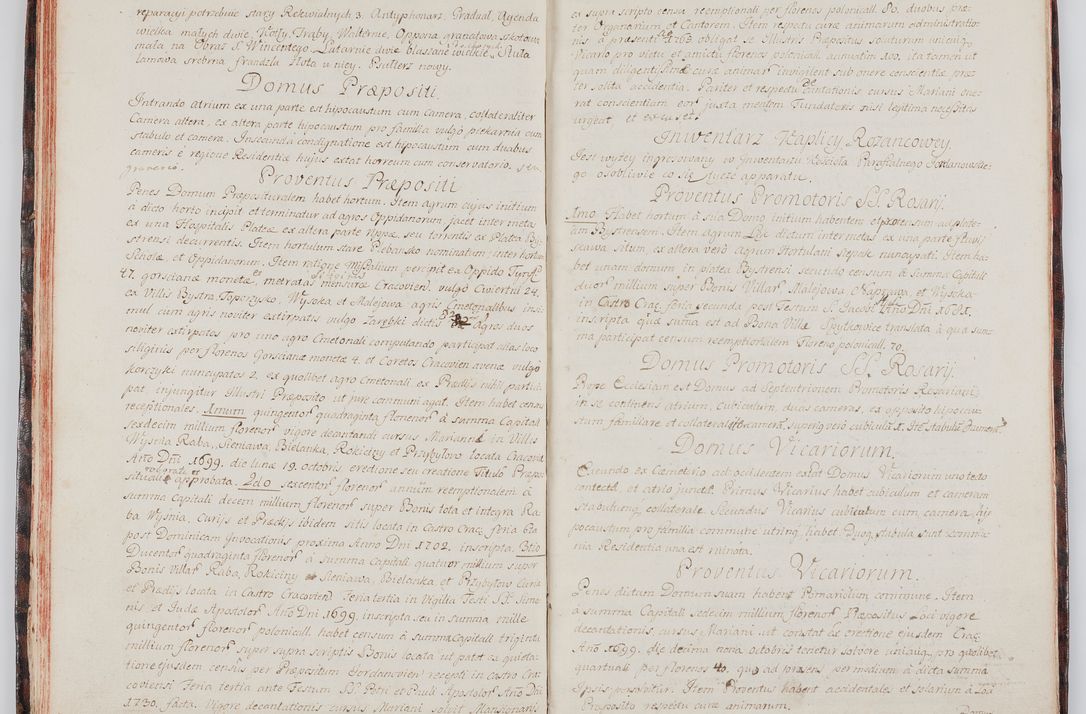 reparacyi potrzebuie stary Rekwialnych 3. Antyphonarz, Graduał, Agenda
wielka małych dwie,
mała na Obraz S. Wincentego. Latarnie dwie blaszane wielkie, Stuła
lamowa srebrna frandzla złota u niey. Psałterz nowy.
Domus Præpositi.
Intrando atrium ex una parte est hipocaustum cum Camera, collateraliter
Camera altera, ex altera parte hipocaustum pro familia vulgò piekarnia cum
stabulo et camera. In secunda condignatione est hipocaustum cum duabus
cameris è regione Residentiæ hujus extat horreum cum conservatorio,
Proventus Præpositi
Penes Domum Præposituralem habet hortum. Item agrum cujus initium
à dicto horto incipit et terminatur ad agros Oppidanorum, jacet inter meta
ex una Hospitalis Plateæ ex altera parte rippæ seu torrentis ex Platea By-
strensi decurrentis. Item hortulum stare Plebansko nominatum inter hortum
Scholæ et Oppidanorum. Item ratione Missalium percipit ex Oppido
47. gorscianæ monetæ, metratas mensuræ Cracovien. vulgò Cwiertui 24.
ex Villis Bystra Toporzysko, Wysoka et Malejowa agris Cmetonalibus insi-
mul cum agris noviter extirpatis vulgo Zarębki dictis agros duos
noviter extirpatos pro uno agro Cmetonali computando participat altas loco
siliginis per florenos Gorscianæ monetæ 4. et Coretos Cracovien. avenæ vulgò
korczyki nuncupatos 2. ex quolibet agro Cmetonali. ex Prædijs nihil partici-
pat, injungitur Illustri Præposito ut jure communi agat. Item habet census
reeptionales. Annum quingentor. quadraginta florenor. à summa Capitali
sexdecim millium florenor. vigore decantandi cursus Mariani in Villis
Wysnia, Raba, Sieniawa, Bielanka, Rokiciny et Przybytow locata Cracoviæ
Año Dñi 1699. die lunæ 19. octobris erectione seu creatione Tituli Præpo-
situralis approbata. 2do sexcentor. florenor. annuum reemptionalem à
summa capitali decem millium florenor. super Bonis tota et integra Ra-
ba Wysnia, Curijs et Prædijs ibidem sitis locata in Castro Crac. feria 6ta
post Dominicam Invocationis proxima Anno Dni 1702. inscripta. 3tio
Ducentor. quadraginta florenor. à summa Capitali quatuor millium super
Bonis Villar. Raba, Rokiciny Sieniawa, Bielanka et Przybytow Curia
et Prædijs locata in Castro Cracovien. Feria tertia in Vigilia Festi SS. Simo-
nis et Judæ Apostolor. Año Dni 1699. inscripta seu in summa mille
quingentor. florenor. polonicall. habet censum à summa Capitali triginta
millium florenor. super supra scriptis Bonis locata ut patet ex quieta-
tione ejusdem census per Præpositum Jordanovien. recepti in castro Cra-
coviensi Feria tertia ante Festum SS. Petri et Pauli Apostolor. Año Dñi
1730. facta. Vigore decantationis cursus Mariani solvit Mansionarijs
ex supra scripto censu reemptionali per florenos polonicall. 80. duobus præ-
ter Organarium et Cantorem. Item respectu curæ animarum administratio-
nis à præsenti Aº 1763 obligat se Illustris Præpositus soluturum unicuiq.
Vicario pro victu et amictu florenos polonicall. annuatim 300. ita tamen ut
quam diligentissime curæ animar. invigilent sub onere conscientiæ præ-
ter solita accidentia. Pariter et respectu decantationis cursus Mariani one-
rat conscientiam eor. juxta mentem Fundatoris nisi legitima necessitas
urgeat, et excuset.
Inwentarz Kaplicy Rozancowey.
Jest wyżey ingrossowany w Inwentarzu Kościoła Parafialnego Jordanowskie-
go osobliwie co się tycze apparatu.
Proventus Promotoris SS. Rosarij.
Anno Habet hortum à sua Domo initium habentem et protensum ad plate-
am Bystrensem. Item agrum Łąz dictum inter metas ex una parte fluvij
Skawa situm, ex altera verò agrum Hortulani Slepak nuncupati. Item ha-
bet unam domum in platea Bystrensi secundo censum à Summa Capitali
duor. millium super Bonis Villar. Malejowa, Naprawa et Wysoka
in Castro Crac. feria secunda post Festum S. Jacobi Año Dñi 1681.
inscripta quæ suma est ad Bona Villæ Spytkowice translata à qua sum-
ma participat censum reemptionalem Floreno polonicall. 70.
Domus Promotoris SS. Rosarij.
Prope Ecclesiam est Domus ad Septentrionem Promotoris Rosariani,
in se continens atrium, cubiculum, duas cameras, ex opposito hipocau-
stum familiare et collateral. camera, superius verò cubicula 2.
Domus Vicariorum.
Exeundo ex Cæmeterio ad occidentem extat Domus Vicariorum uno tecto
contecta, et atrio juncta. Primus Vicarius habet cubiculum et cameram
sea butnuq. collaterale. Secundus Vicarius cubiculum cum camera, hi-
pocaustum pro familia commune utriq. habet. Duoq. stabula sunt commu-
nia Residentia una est ruinata.
Proventus Vicariorum.
Penes dictum Domum suam habent Pomarium commune. Item
à summa Capitali Sedecim millium florenor. Præpositus loci vigore
decantationis cursus Mariani ut constat ex erectione ejusdem Crac.
Año 1699. die decima nona octobris tenetur solvere unicuiq. pro quolibet
quartuali per florenos 40. quo ad præsens permedium à dicta summa
ipsis persolvitur. Item Proventus habent accidentales et solarium à Loci
Præposito respectu curæ animarum.
Domus